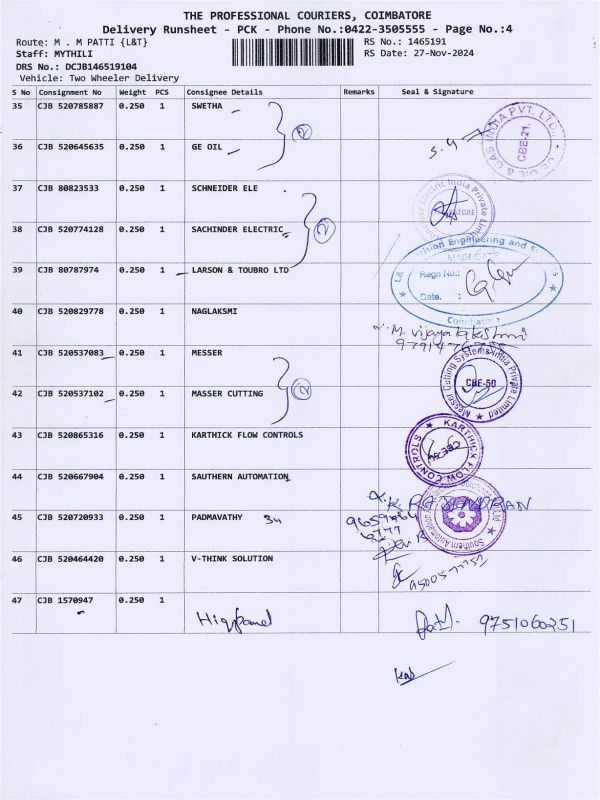 THE PROFESSIONAL COURIERS, COIMBATORE
Delivery Runsheet - PCK - Phone No.:0422-3505555 - Page No.:4
Route: M . M PATTI {L&T} RS No.: 1465191
Staff: MYTHILI RS Date: 27-Nov-2024
DRS No.: DCJB146519104
Vehicle: Two Wheeler Delivery
S No Consignment No Weight PCS Consignee Details Remarks Seal & Signature
35 CJB 520785887 0.250 1 SWETHA
2
CBE-21.
36 CJB 520645635 0.250 1 GE OIL
37 CJB 80823533 0.250 1 SCHNEIDER ELE
38 CJB 520774128 0.250 1 SACHINDER ELECTRIC
2
Engineering and
MAIN GATE
39 CJB 80787974 0.250 1 LARSON & TOUBRO LTD Regn No.:
Date. :
Coimbatore
40 CJB 520829778 0.250 1 NAGLAKSMI
41 CJB 520537083 0.250 1 MESSER
2
Messer Cutting Systems India Private Limited
CBE-50
42 CJB 520537102 0.250 1 MASSER CUTTING
43 CJB 520865316 0.250 1 KARTHICK FLOW CONTROLS
KARTHICK FLOW CONTROLS
44 CJB 520667904 0.250 1 SAUTHERN AUTOMATION
45 CJB 520720933 0.250 1 PADMAVATHY
Southern Automation
46 CJB 520464420 0.250 1 V-THINK SOLUTION
47 CJB 1570947 0.250 1
9751060251